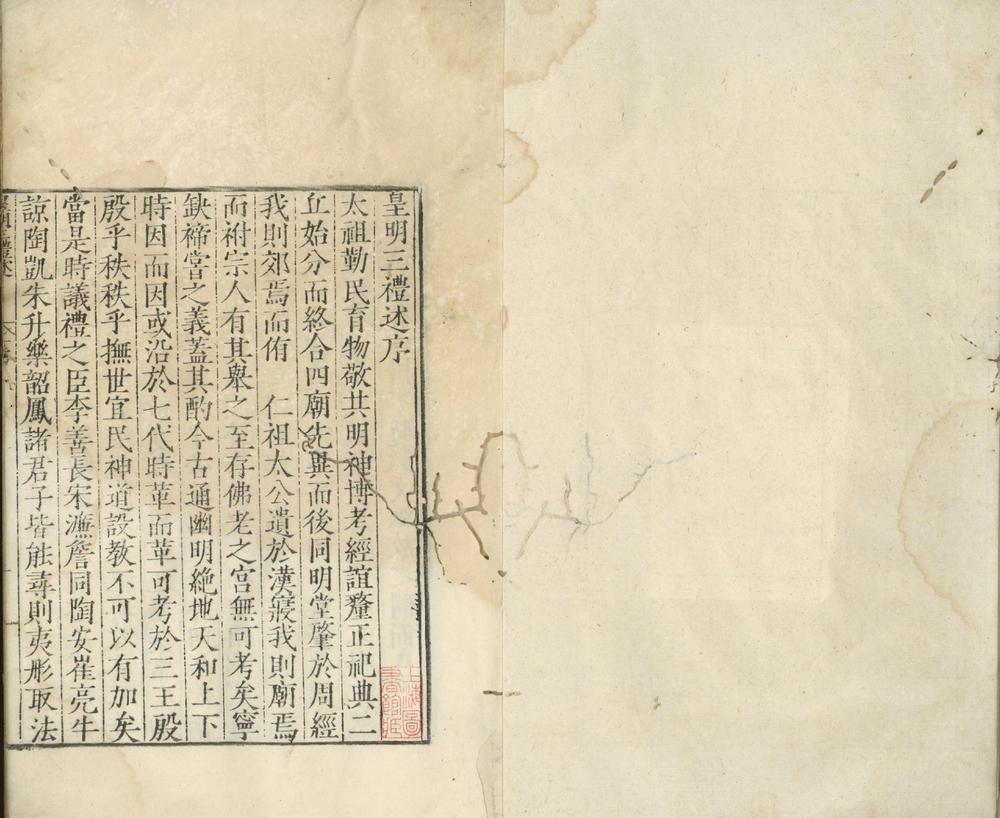 皇明三禮述序
太祖勤民育物敬共明神博考經誼釐正祀典二
丘始分而終合四廟先異而後同明堂肇於周經
我則郊焉而侑　仁祖太公遺於漢寢我則廟焉
而祔宗人有其舉之至存佛老之宮無可考矣寧
缺禘嘗之義蓋其酌今古通幽明絶地天和上下
時因而因或沿於七代時革而革可考於三王殷
殷乎秩秩乎撫世宜民神道設教不可以有加矣
當是時議禮之臣李善長宋濂詹同陶安崔亮牛
諒陶凱朱升樂韶鳳諸君子皆能尋則夷形取法
上海圖
書館藏